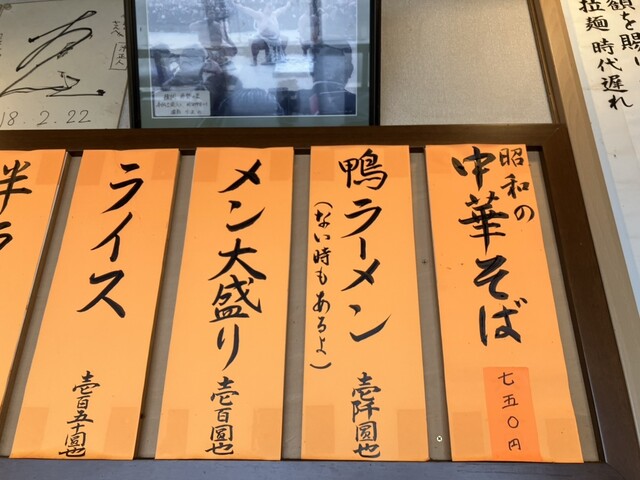 顔を賜い
拉麺 時代遅れ
昭和の
中華そば
七五〇円
鴨ラーメン
(ない時もあるよ)
壱阡圓也
メン大盛り
壱百圓也
ライス
壱百五十圓也
半ラ
18.2.22